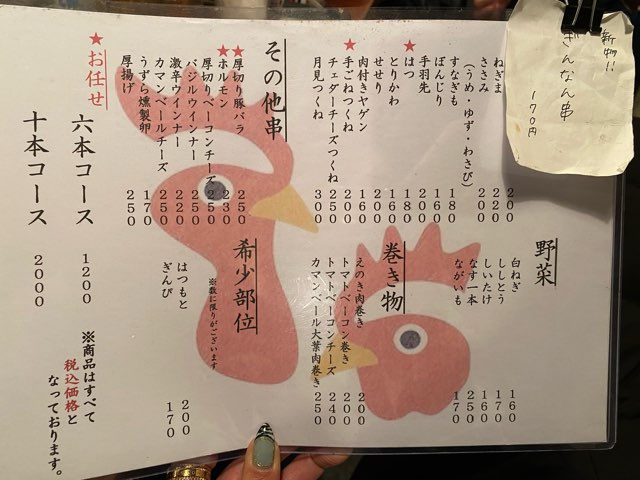 新物!!
ぎんなん串
170円
ねぎま 200
ささみ 220
(うめ・ゆず・わさび) 200
すなぎも 180
ぼんじり 160
手羽先 200
★はつ 180
とりかわ 160
せせり 200
肉付きヤゲン 160
★手ごねつくね 200
チェダーチーズつくね 250
月見つくね 300
その他串
★厚切り豚バラ 250
★ホルモン 230
厚切りベーコンチーズ 250
バジルウインナー 250
激辛ウインナー 220
カマンベールチーズ 250
うずら燻製卵 170
厚揚げ 250
野菜
白ねぎ 160
ししとう 160
しいたけ 170
なす一本 250
ながいも 170
巻き物
えのき肉巻き 200
トマトベーコン巻き 200
トマトベーコンチーズ 240
カマンベール大葉肉巻き 250
希少部位
※数に限りがございます
はつもと 200
ぎんぴ 170
★お任せ
六本コース 1200
十本コース 2000
※商品はすべて
税込価格と
なっております。